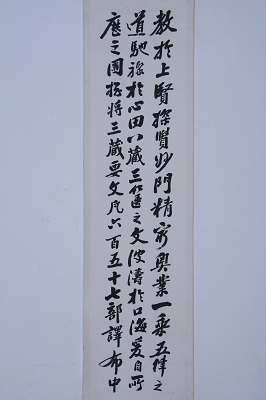 教於上賢探賾妙門精窮奧業一乘五律之
道馳驟於心田八藏三篋之文波濤於口海爰自所
歷之國揔將三藏要文凡六百五十七部譯布中